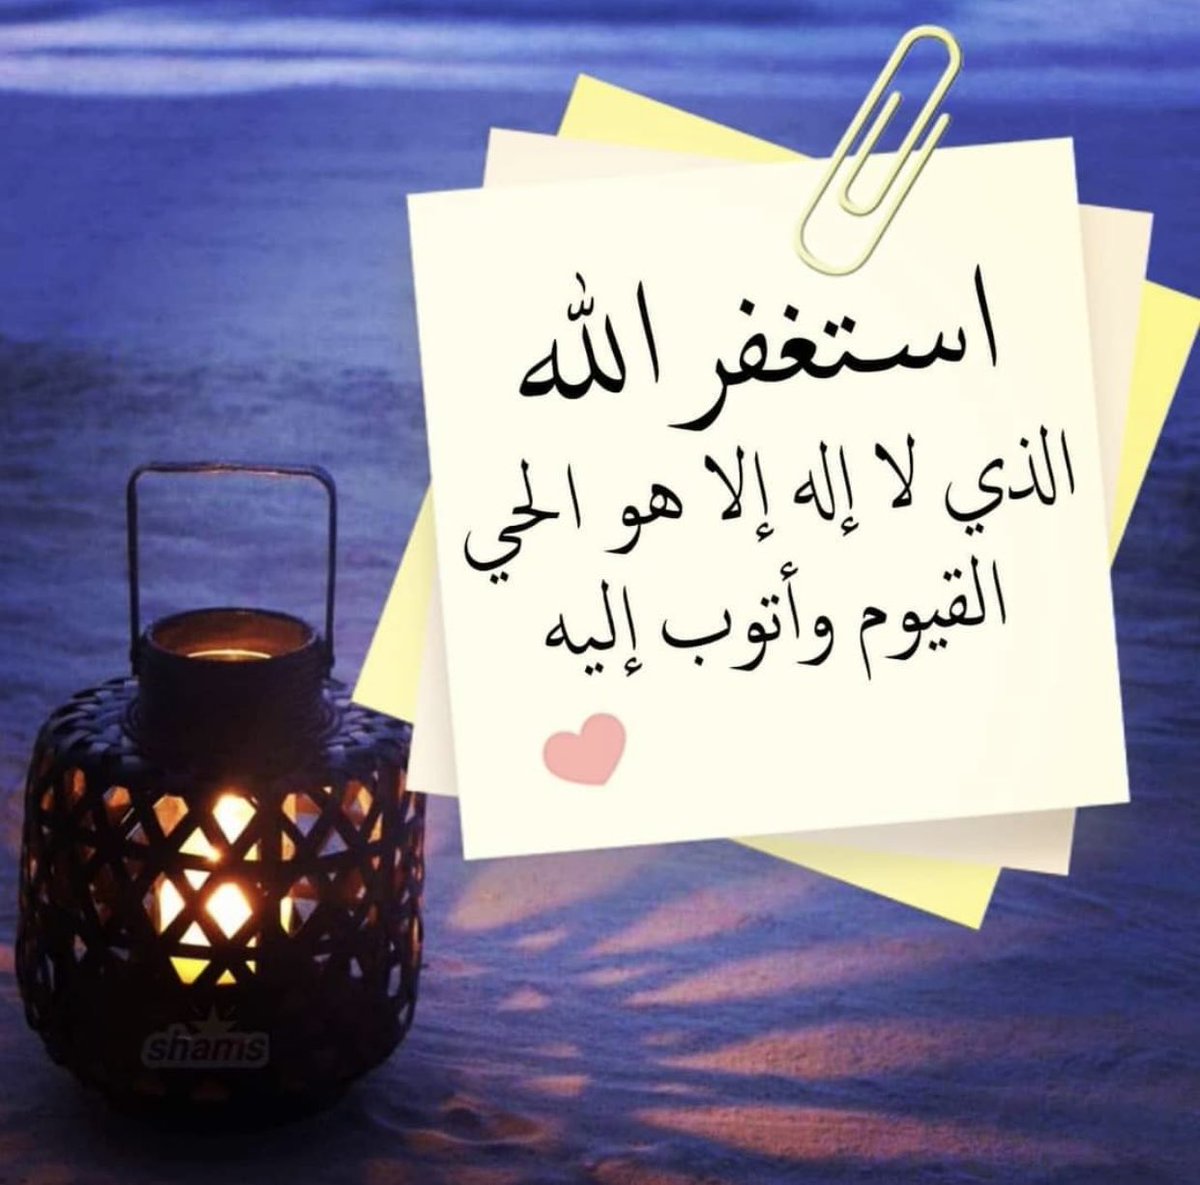 استغفر الله
الذي لا إله إلا هو الحي
القيوم وأتوب إليه
shams